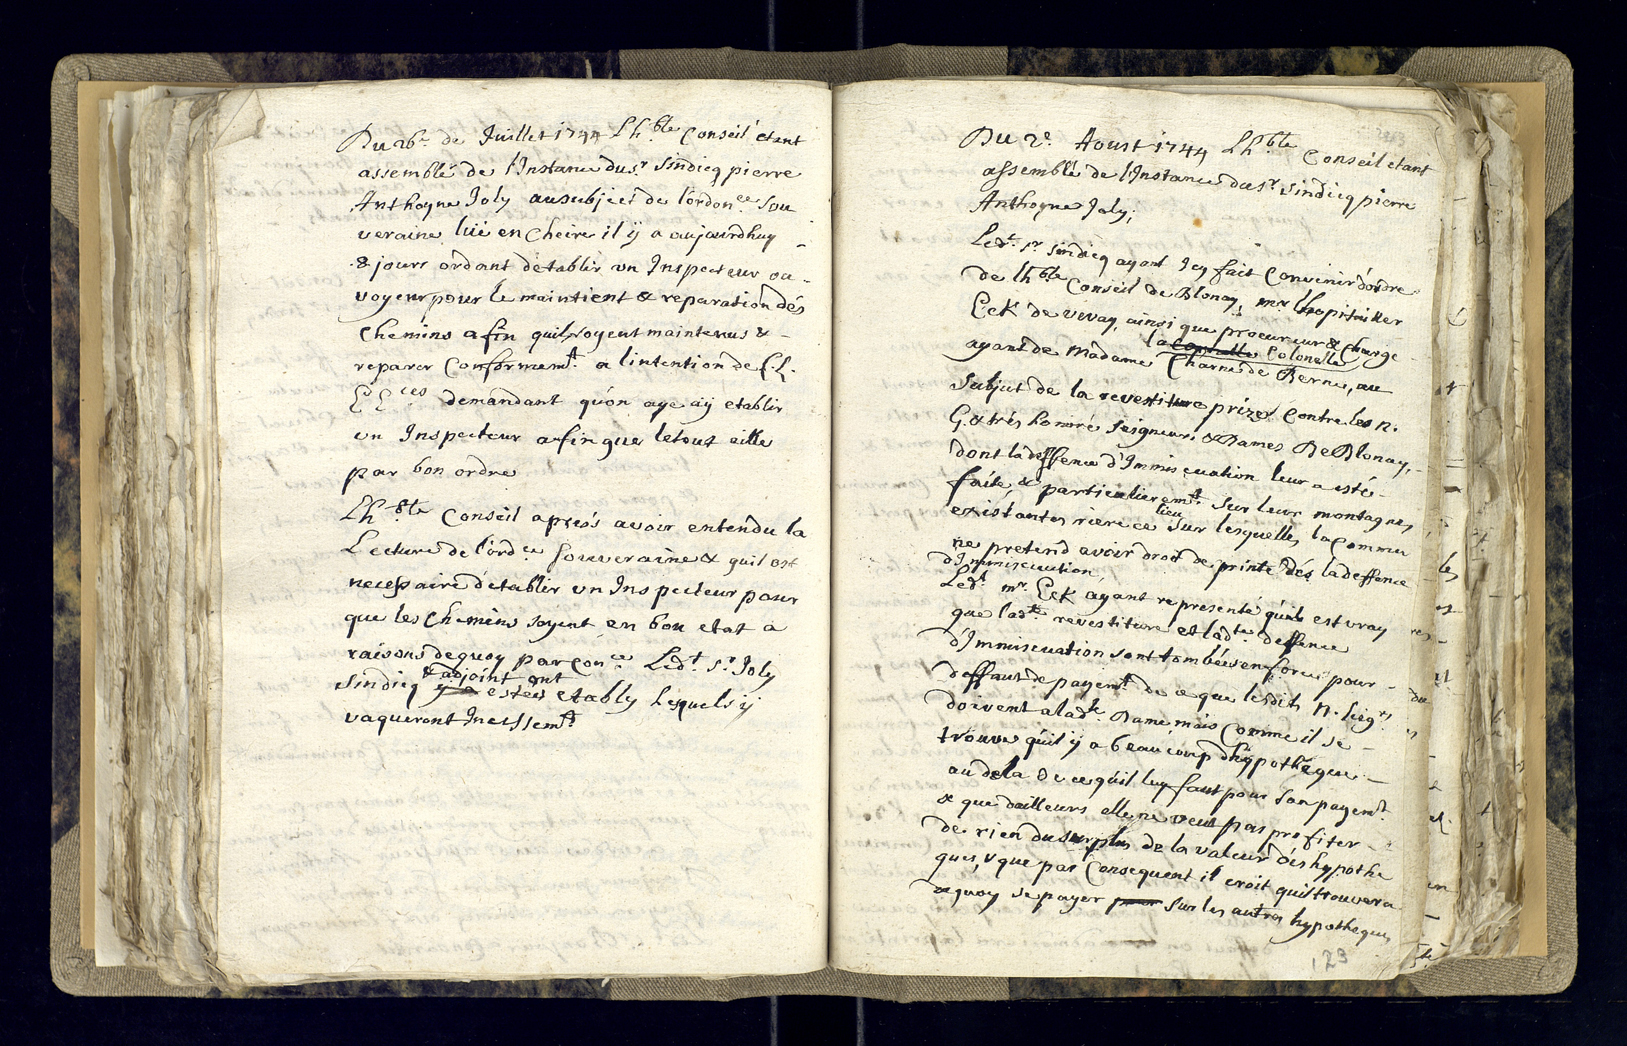 Du 26e. de Juillet 1744 Lhble Conseil etant
assemblé de l'Instance du sr. Sindicq pierre
Anthoyne Joly au subject de l'ordonce. Sou
veraine lüe en Cheire il ÿ a aujourdhuy
8 jours ordant d'etablir un Inspecteur ou
voyeur pour le maintient & reparation dés
Chemins afin quil soyent maintenus &
reparer Conformemt. a l'intention de L.L.
EE ces demandant qu'on aye aÿ etablir
un Inspecteur afin que le tout aille
par bon ordre
Lhble Conseil aprés avoir entendu la
Lecture de l'ordce Souveraine & quil est
necessaire d'etablir un Inspecteur pour
que les Chemins soyent en bon etat a
raisons dequoy par Conce. Ledt. Sr. Joly
& adjoint ont
Sindicq estés etably Lesquels ÿ
vaqueront Incessemt
Du 2e. Aoust 1744 Lhble Conseil etant
assemblé de l'Instance du sr. Sindicq pierre
Anthoyne Joly;
Ledt. sr. Sindicq ayant Icy fait Convenir d'ordre
de lhble Conseil de Blonay, mr. l'hopitallier
Eck de vivay, ainsi que procureur & Charge
la Colonelle
ayant de Madame Charne de Berne, au
Subjet de la revestiture prize Contre les n.
G. & trés honnoré Seigneurs & Dames De Blonay,
dont la deffence d'Immiscuation leur a esté
faite, & particulieremt. Sur leur montagnes
lieu
existantes riere ce Sur lesquelles la Commu
ne pretend avoir droit de printe dés la deffence
d'Immiscuation,
Ledt. mr. Eck ayant representé quils est vray
que ladte. revestiture et ladte deffence
d'Immiscuation sont tombées en force pour
deffaut de payemt. de ce que lesdits N. Siegrs
doivent a lade. Dame mais Comme il se
trouve qu'il ÿ a beaucoup d'hypothéque
au dela de ce quil luy faut pour son payemt.
& que dailleurs elle ne veut pas profiter
de rien du surplus de la valeur dés hypothe
ques, & que par Consequent il croit quil trouvera
dequoy se payer sur les autres hypotheques
123